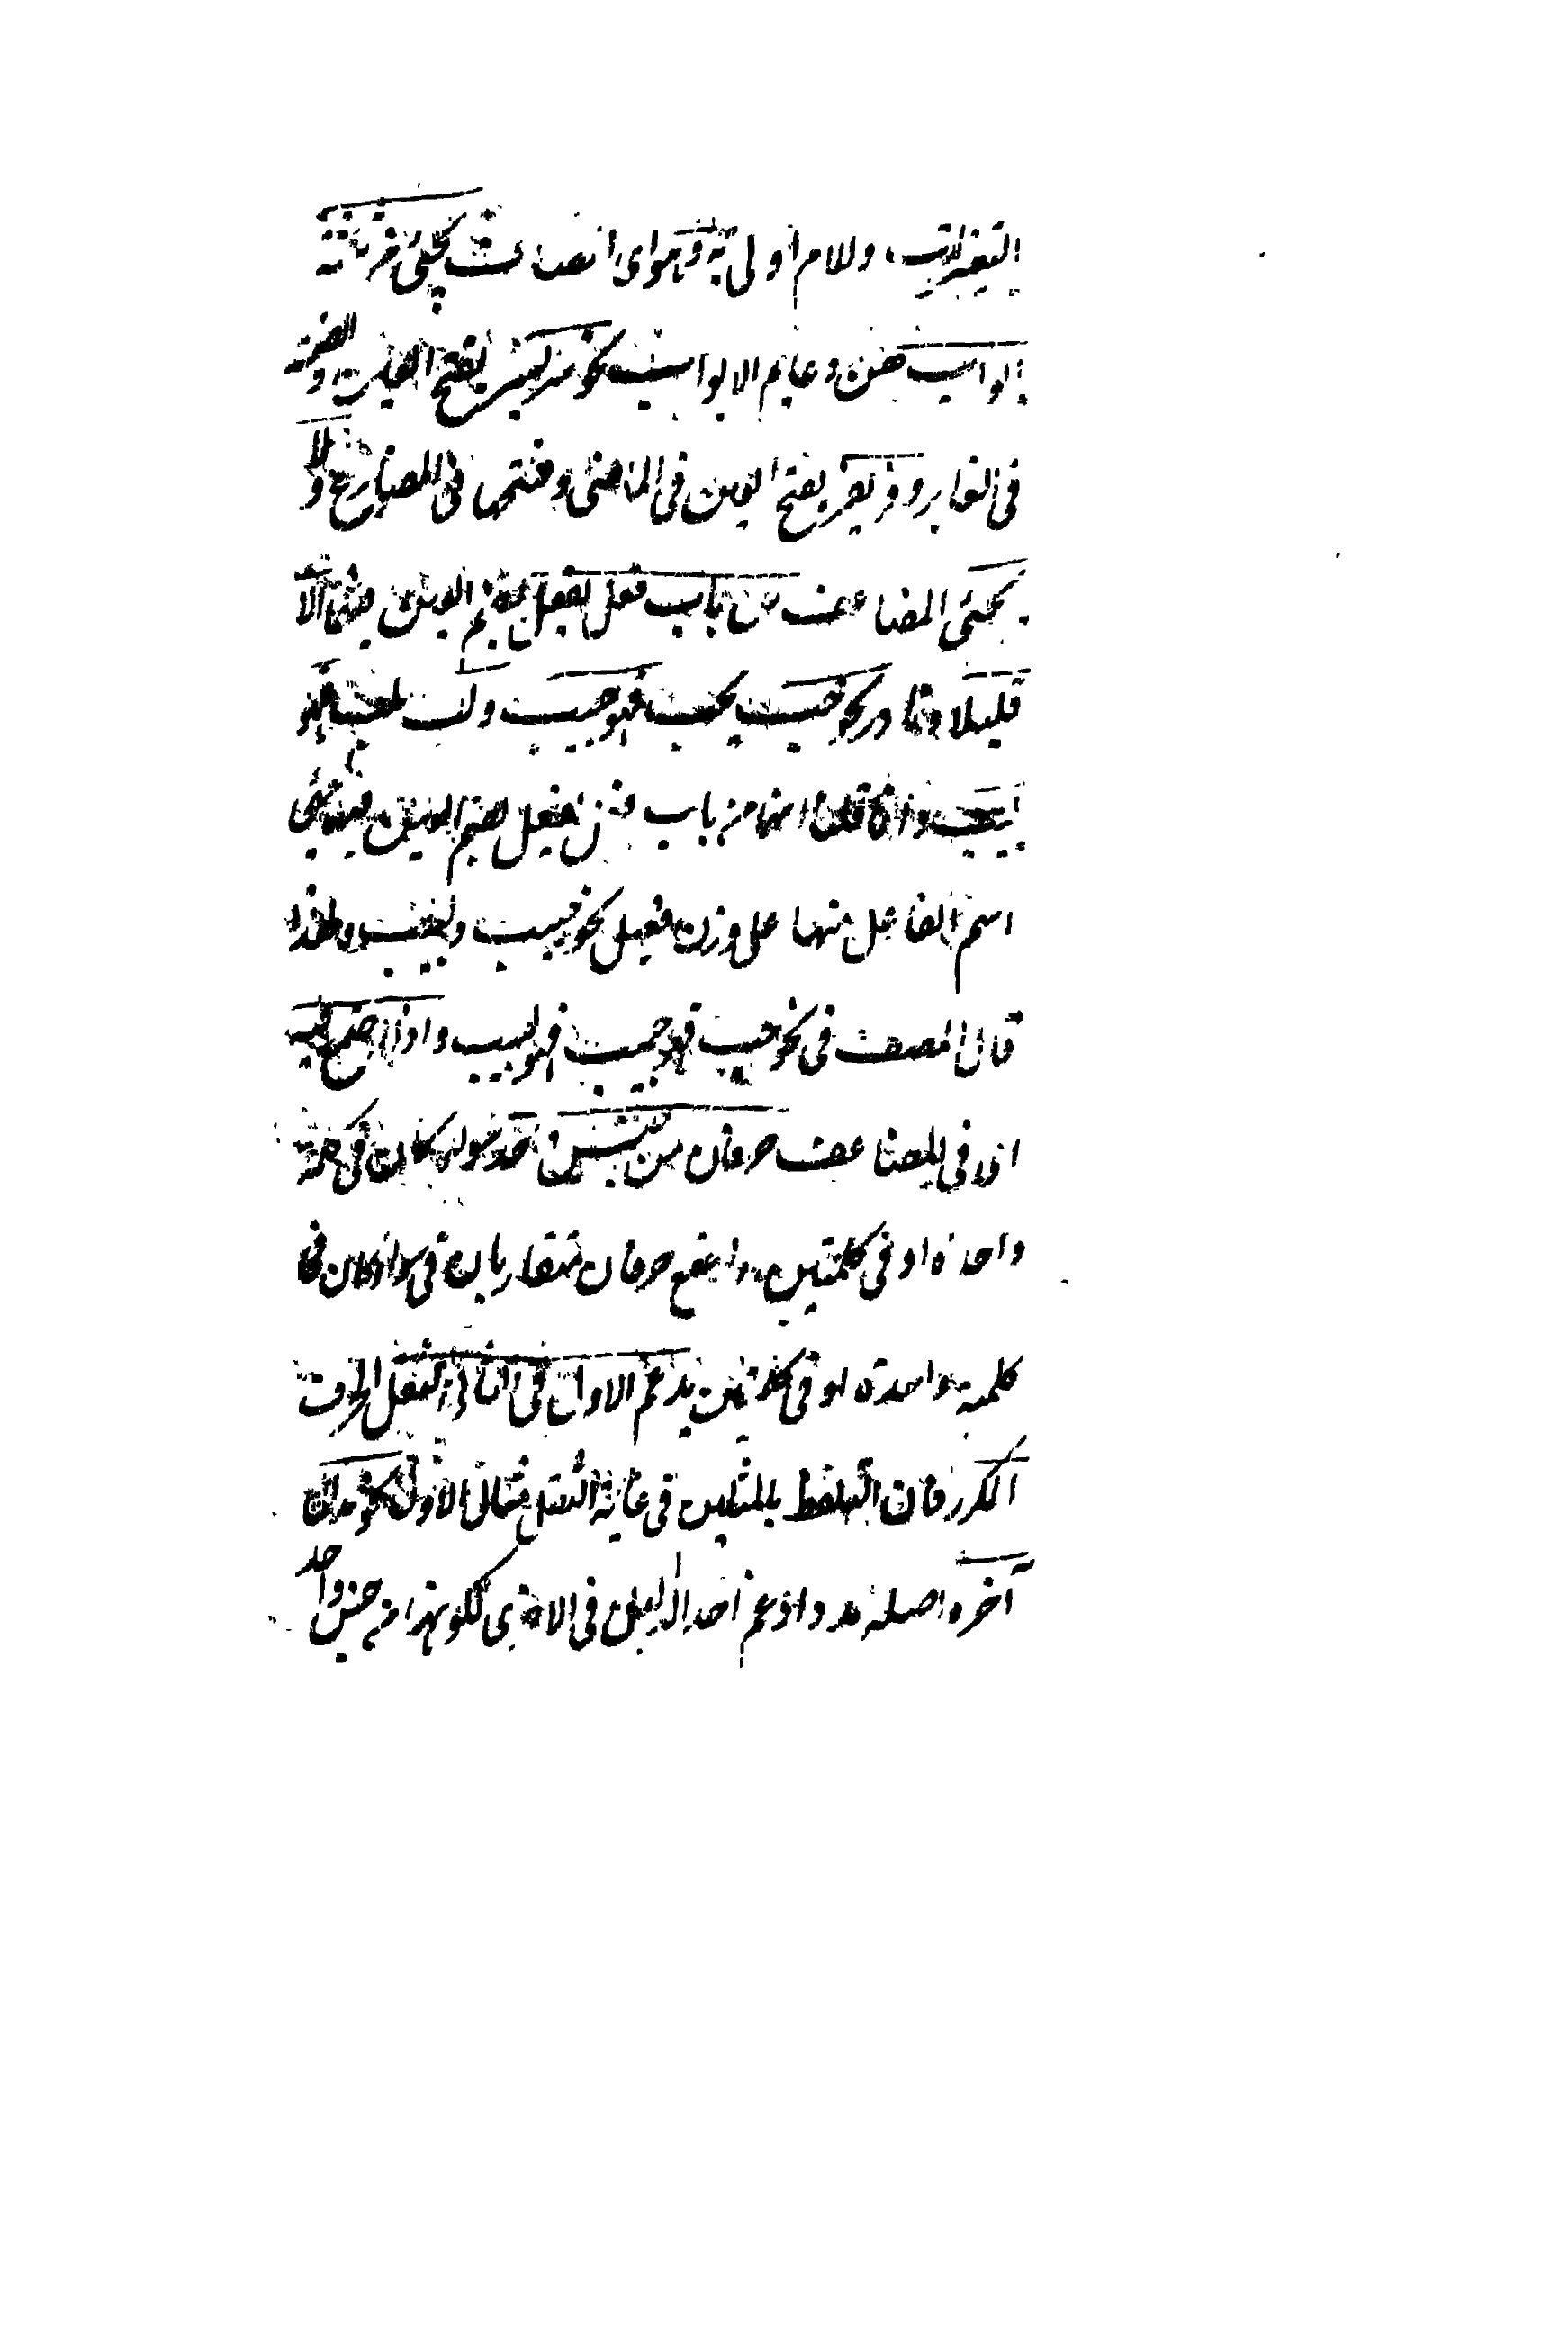 التغيرات واللام اولى به وهو اى المضاعف يجئ من ثلثة
ابواب من دعايم الابواب نحو سر يسر بفتح العين والضمة
فى الغابر وفر يفر بفتح العين فى الماضى و فى المضارع ولا
يجئ المضاعف من باب فعل يفعل بضم العين فيهما الا
قليلا نادر نحو حبب يحب فهو حبيب ولب يلب فهو
لبيب وانما قلنا انهما من باب فعل يفعل بضم العين فيهما
اسم الفاعل منهما على وزن فعيل نحو حبيب ولبيب ولهذا
قال المصنف فى نحو حب فهو حبيب فهو لبيب واذا اجتمع
اى فى المضاعف حرفان من جنس واحد سواء كان فى كلمة
واحدة او فى كلمتين واجتمع حرفان متقاربان فى سواء كان فى
كلمة واحدة او فى كلمتين يدغم الاول فى الثانى لثقل الحرف
المكرر فان التلفظ بالمثلين فى غاية الثقل مثال الاول نحو مد الى
آخره اصله مدد ادغم احد الدالين فى الاخرى لكونهما من جنس واحد